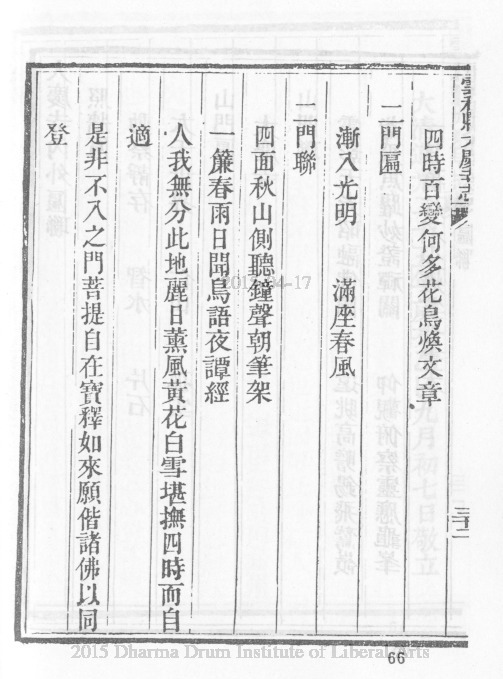 四時百變何多花鳥煥文章
二門匾
漸入光明 滿座春風
二門聯
四面秋山側聽鐘聲朝筆架
一簾春雨日聞鳥語夜譚經
人我無分此地麗日薰風黃花白雪堪撫四時而自
適
是非不入之門菩提自在寶釋如來願偕諸佛以同
登
三十二
66
2015 Dharma Drum Institute of Liberal Arts